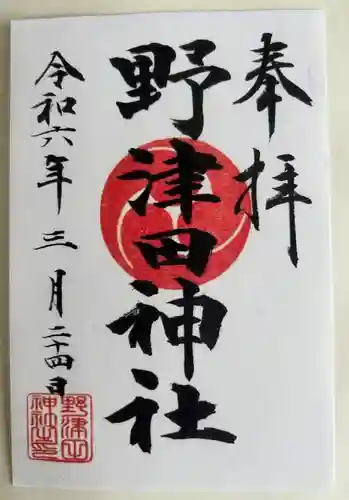 奉拝
野津田神社
令和六年三月二十四日
野津田
神社印